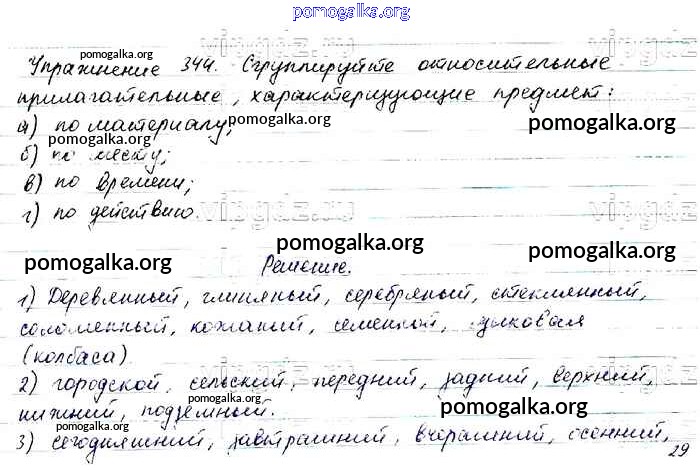 pomogalka.org
pomogalka.org
Упражнение 344. Сгруппируйте относительные
прилагательные, характеризующие предмет:
а) по материалу; pomogalka.org pomogalka.org
б) по месту; pomogalka.org
в) по времени;
г) по действию. vipgdz.ru vipgdz.ru
pomogalka.org pomogalka.org pomogalka.org
Решение.
1) Деревянный, глиняный, серебряный, стеклянный,
соломенный, кожаный, семенной,
(колбаса)
pomogalka.org pomogalka.org
2) городской, сельский, передний, задний, верхний,
нижний, подземный. pomogalka.org
3) сегодняшний, завтрашний, вчерашний, осенний,
pomogalka.org
29